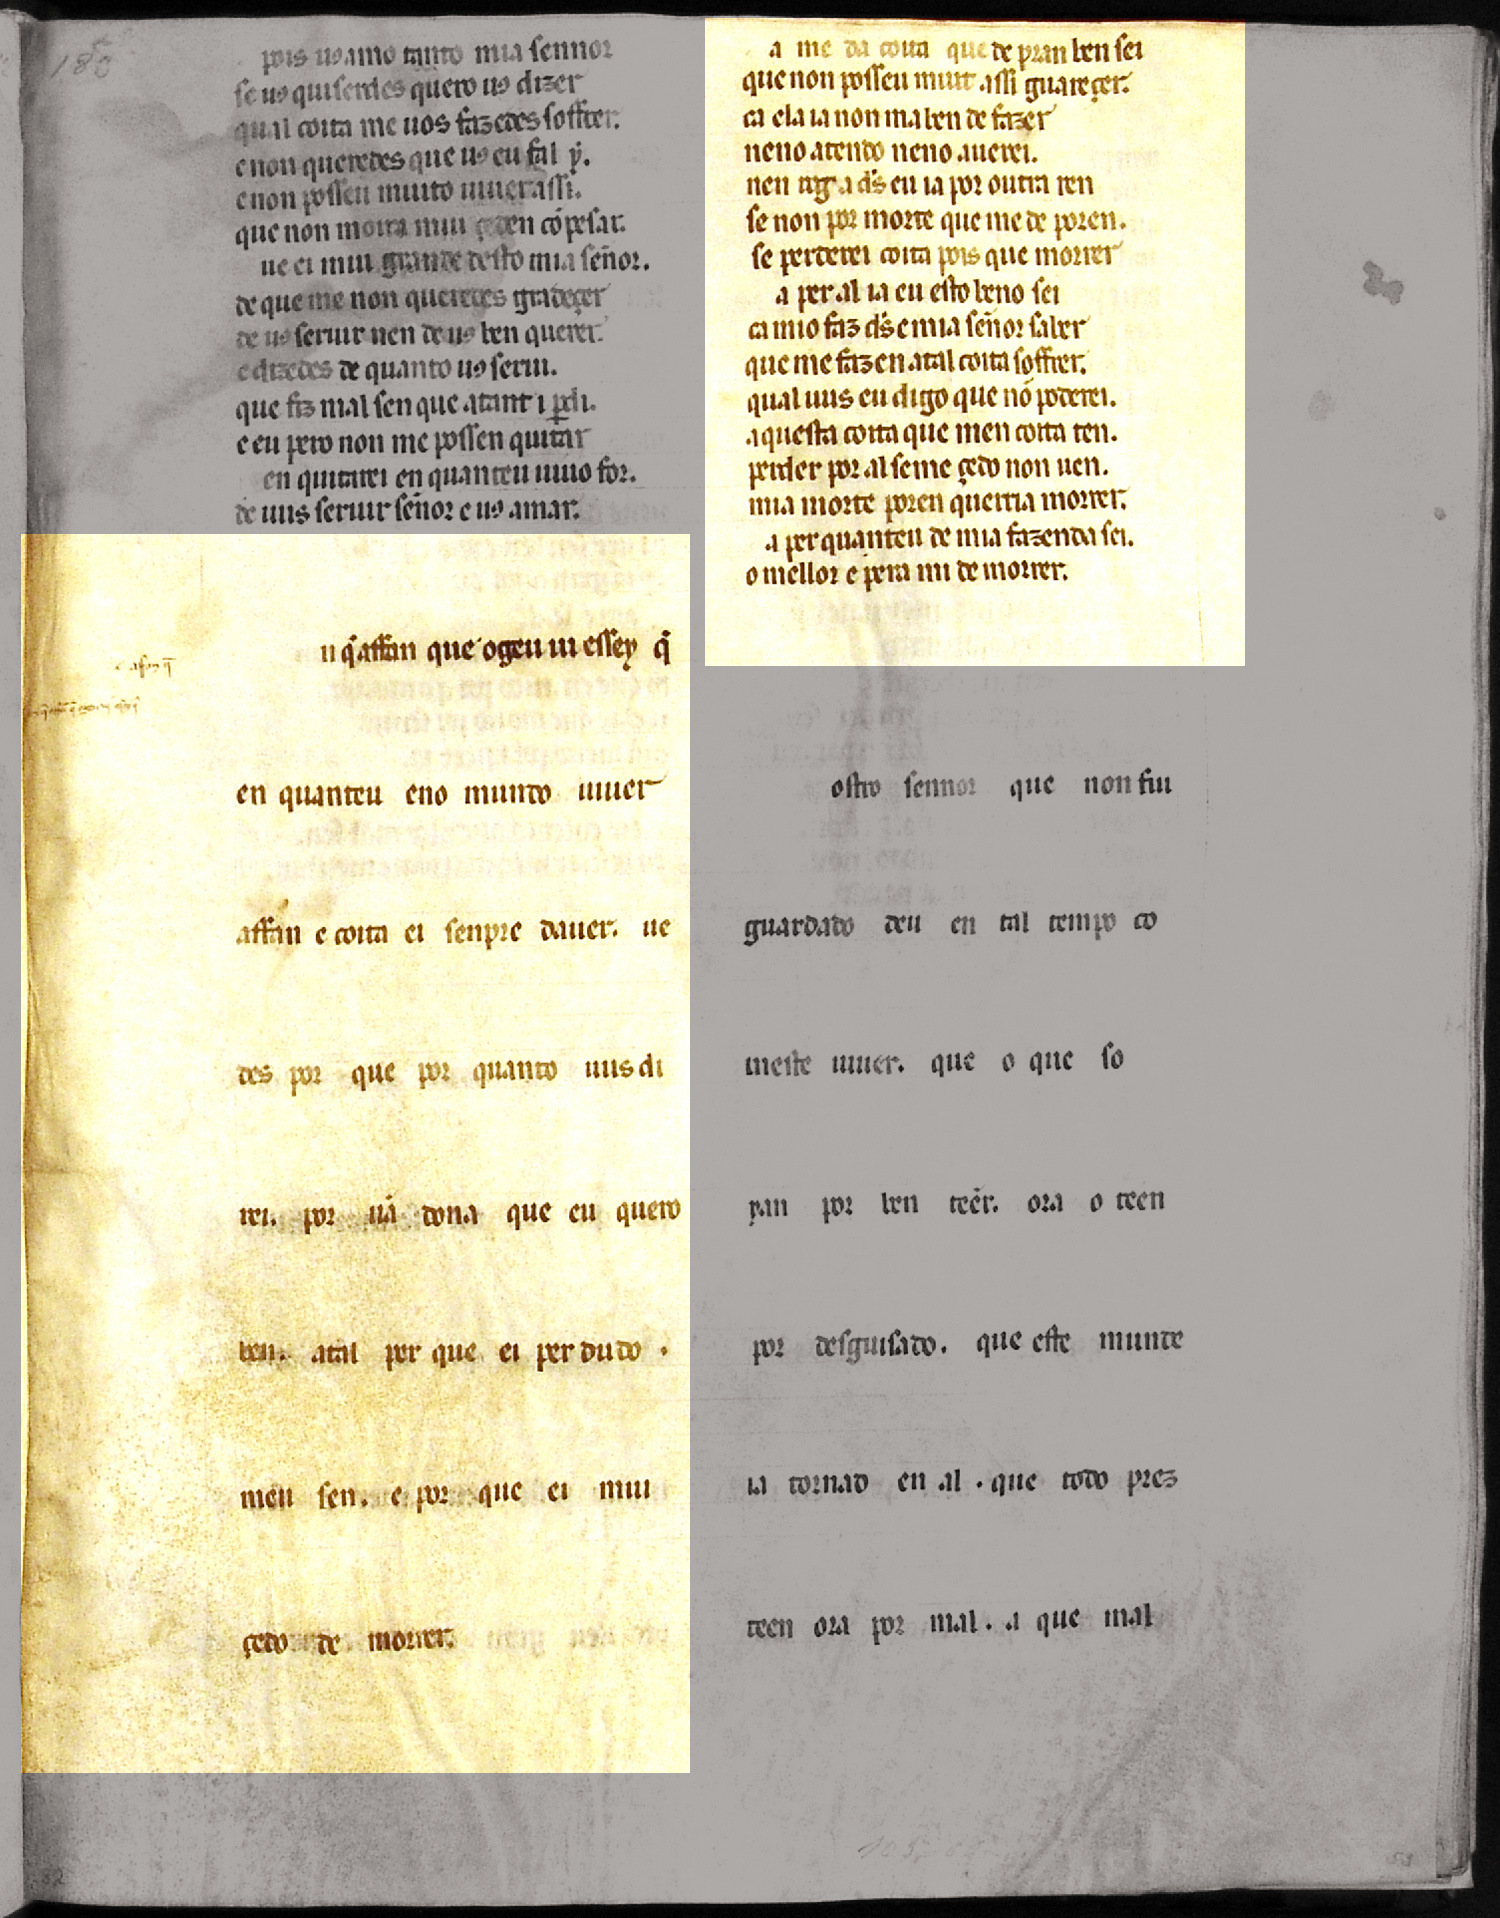 pois us amo tanto mia sennor
se us quiserdes quero us dizer
qual coita me uos fazedes soffrer.
e non queredes que us eu fal y.
e non posseu muito uiuer assi.
que non moira mui çeden cõ pesar.
ue ei mui grande desto mia señor.
de que me non queredes gradeçer
de us seruir nen de us ben querer.
e dizedes de quanto us serui.
que fiz mal sen que atant i perdi.
e eu pero non me possen quitar
en quitarei en quanteu uiuo for.
de uus seruir señor e us amar.
u q̃ affan que ogeu ui e ssey q̃
en quanteu eno mundo uiuer
affan e coita ei senpre dauer. ue
des por que por quanto uus di
rei. por ũa dona que eu quero
ben. atal per que ei perdudo.
meu sen. e por que ei mui
çedo de morrer.
a me da coita que de pran ben sei
que non posseu muit assi guareçer.
ca ela ia non ma ben de fazer
neno atendo neno auerei.
nen rog a d's eu ia por outra ren
se non por morte que me de poren.
se perderei coita pois que morrer
a per al ia eu esto beno sei
ca mio faz d's e mia señor saber
que me fazen atal coita soffrer.
qual uus eu digo que nõ poderei.
aquesta coita que men coita ten.
perder por al seme çedo non uen.
mia morte poren querria morrer.
a per quanteu de mia fazenda sei.
o mellor e pera mi de morrer.
ostro sennor que non fui
guardado deu en tal tempo co
meste uiuer. que o que so
yan por ben teẽr. ora o teen
por desguisado. que este munde
ia tornad en al. que todo prez
teen ora por mal. a que mal